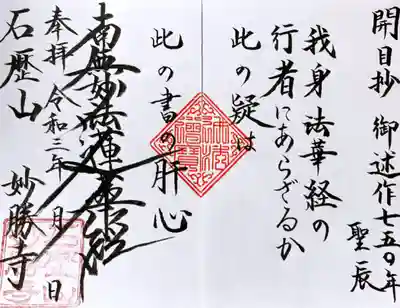 開目抄 御述作七五〇年
聖辰
我身法華経の
行者にあらざるか
此の疑は
此の書の肝心
南無妙法蓮華経
奉拝 令和三年 月 日
石歴山 妙勝寺